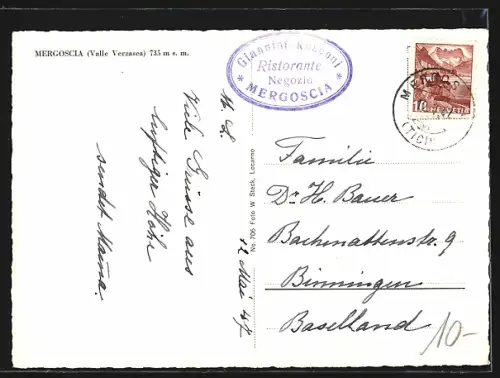 MERGOSCIA (Valle Verzasca) 735 m s. m.
Giannini Rusconi
Ristorante
Negozio
* MERGOSCIA *
10
HELVETIA
(TICI
No. 706 Foto W Steck, Locarno
12 Mai 47
M. L.
Viele Grüsse aus
luftiger Höhe
sendet Mama.
Familie
Dr. H. Bauer
Bachmattenstr. 9
Binningen
Baselland
10-